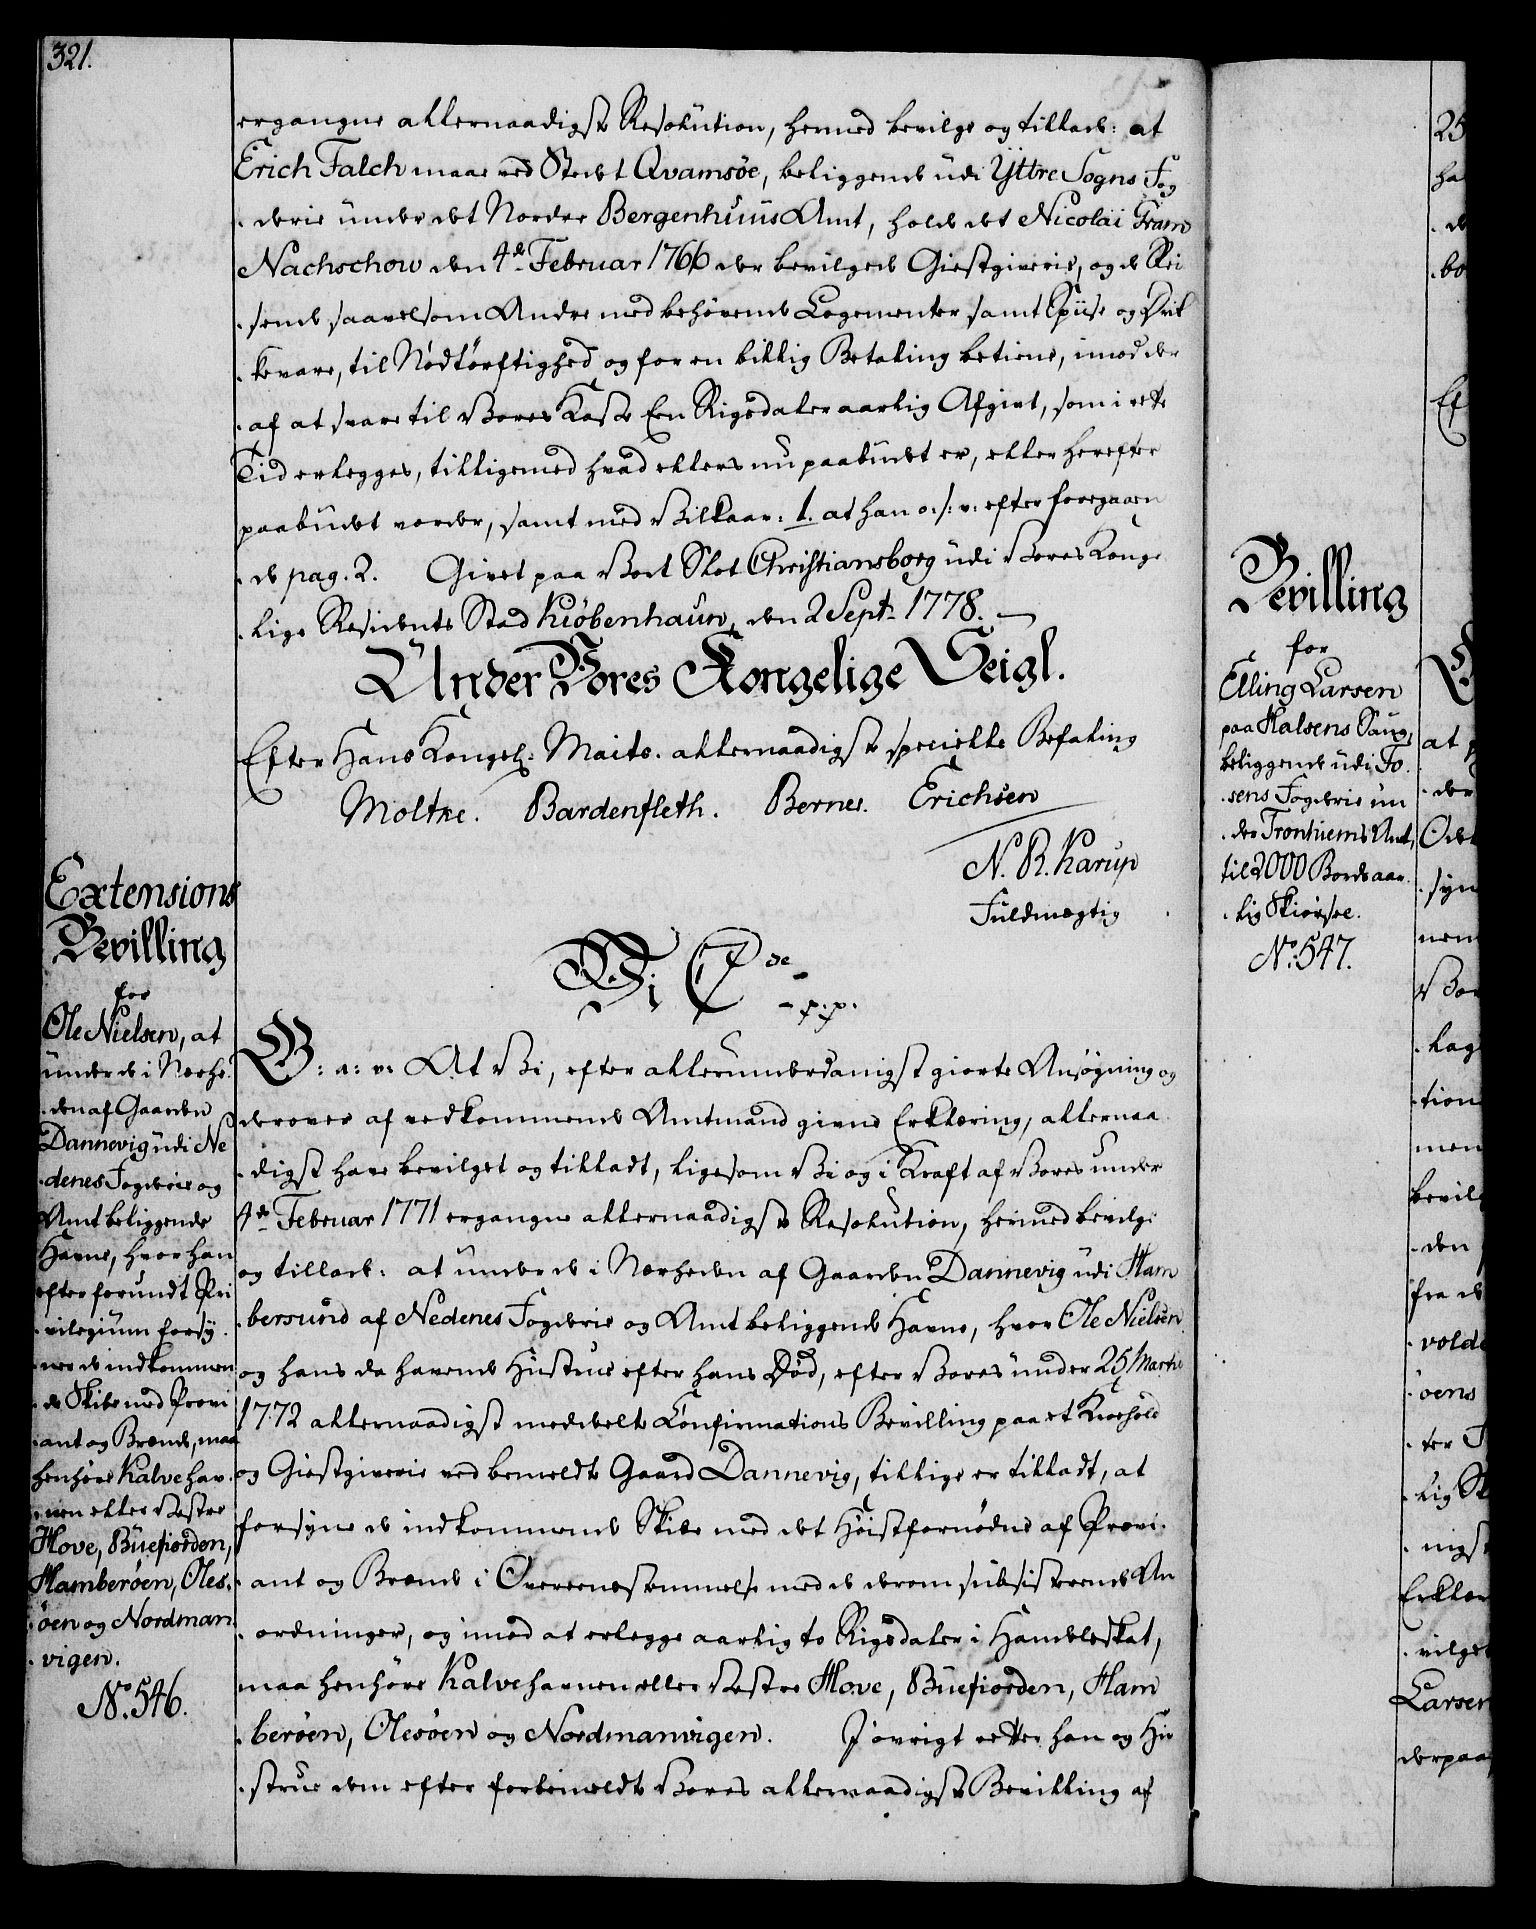 321.
ergangne allernaadigste Resolution, hermed bevilge og tillade: at
Erich Falch maae ved Stedet Qvamsöe, beliggende udi Yttre Sogns Fog
derie under det Nordre Bergenhuus Amt, holde det Nicolai Fram
Nachschow den 4de Februar 1766 der bevilgede Giestgiverie, og de Rei
sende saavelsom Andre med behövende Logementer samt Spiise og Drik
kevare, til Nödtörftighed og for en billig Betaling betiene, imod der
af at svare til Vores Kasse Een Rigsdaler aarlig Afgivt, som i rette
Tid erlegges, tilligemed hvad ellers nu paabudet er, eller herefter
paabudet vorder, samt med Vilkaar: 1. at han o: s: v: efter foregaaen
de pag. 2. Givet paa Vort Slot Christiansborg udi Vores Konge
lige Residents Stad Kiöbenhaun, den 2 Septr 1778.
Under Vores Kongelige Seigl.
Efter Hans Kongel: Maits. allernaadigste specielle Befaling
Moltke. Bardenfleth. Berner. Erichsen
N. R. Karup
Fuldmægtig
Extensions
Bevilling
for
Ole Nielsen, at
under de i Nærhe
den af Gaarden
Dannevig udi Ne
denes Fogderie og
Amt beliggende
Havne, hvor han
efter forundt Pri
vilegium forsy
ner de indkommen
de Skibe med Provi
ant og Brænde, maa
henhöre Kalvehav
nen eller Vestre
Hove, Buefiorden,
Hamberöen, Oles
öen og Nordman
vigen.
No. 546.
Vi C 7de p.p.
G: a: v: At Vi, efter allerunderdanigst giorte Ansøgning og
derover af vedkommende Amtmand givne Erklæring, allernaa
digst have bevilget og tilladt, ligesom Vi og i Kraft af Vores under
4de Februar 1771 ergangne allernaadigste Resolution, hermed bevilge
og tillade: at under de i Nærheden af Gaarden Dannevig udi Ham
bersund af Nedenes Fogderie og Amt beliggende Havne, hvor Ole Nielsen
og hans da havende Hustrue efter hans Död, efter Vores under 25 Martii
1772 allernaadigst meddeelte Confirmations Bevilling paa et Kroehold
og Giestgiverie ved bemeldte Gaard Dannevig, tillige er tilladt, at
forsyne de indkommende Skibe med det Höistfornödne af Provi
ant og Brænde i Overeenstemmelse med de derom subsisterende An
ordninger, og imod at erlegge aarlig to Rigsdaler i Handelsskat,
maa henhöre Kalvehavnen eller Vestre Hove, Buefiorden, Ham
beröen, Olesöen og Nordmanvigen. I övrigt retter han og Hu
strue dem efter forbemeldte Vores allernaadigste Bevilling af
Bevilling
for
Elling Larsen
paa Halsens Saug,
beliggende udi Fo
sens Fogderie un
der Tronhiems Amt,
til 2000 Bords aar
lig Skiørsee.
No. 547.